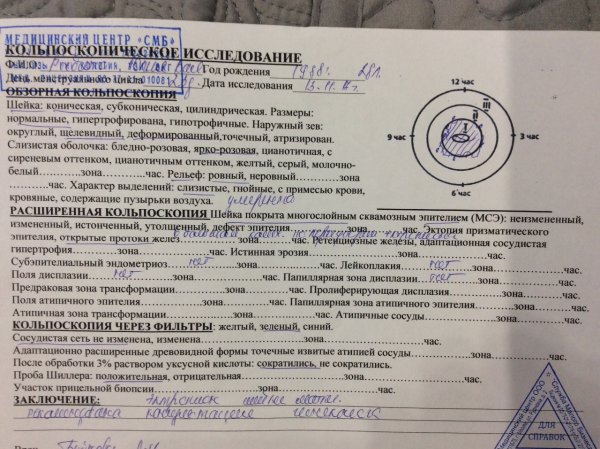 МЕДИЦИНСКИЙ ЦЕНТР «СМБ»
КОЛЬПОСКОПИЧЕСКОЕ ИССЛЕДОВАНИЕ
Ф.И.О. Год рождения 1988г. 28л.
День менструального цикла Дата исследования
ОБЗОРНАЯ КОЛЬПОСКОПИЯ
Шейка: коническая, субконическая, цилиндрическая. Размеры:
нормальные, гипертрофирована, гипотрофичные. Наружный зев:
округлый, щелевидный, деформированный,точечный, атризирован.
Слизистая оболочка: бледно-розовая, ярко-розовая, цианотичная, с
сиреневым оттенком, цианотичным оттенком, желтый, серый, молочно-
белый…………час. Рельеф: ровный, неровный…………зона
………час. Характер выделений: слизистые, гнойные, с примесью крови,
кровяные, содержащие пузырьки воздуха. умеренно
12 час
III
II
I
9 час
3 час
6 час
РАСШИРЕННАЯ КОЛЬПОСКОПИЯ Шейка покрыта многослойным сквамозным эпителием (МСЭ): неизмененный,
измененный, истонченный, утолщенный, дефект эпителия…………зона………час. Эктория призматического
эпителия, открытые протоки желез…………зона………час. Ретенциозные железы, адаптационная сосудистая
гипертрофия…………зона………час. Истинная эрозия…………зона………час.
Субэпителиальный эндометриоз нет зона………час. Лейкоплакия нет зона………час.
Поля дисплазии нет зона………час. Папиллярная зона дисплазии нет зона………час.
Предраковая зона трансформации…………зона………час. Пролиферирующая дисплазия…………зона………час.
Поля атипичного эпителия…………зона………час. Папиллярная зона атипичного эпителия…………зона………час.
Атипичная зона трансформации…………зона………час. Атипичные сосуды…………зона………час.
КОЛЬПОСКОПИЯ ЧЕРЕЗ ФИЛЬТРЫ: желтый, зеленый, синий.
Сосудистая сеть не изменена, изменена…………зона………час.
Адаптационно расширенные древовидной формы точечные извитые атипией сосуды…………зона………час.
После обработки 3% раствором уксусной кислоты: сократились, не сократились.
Проба Шиллера: положительная, отрицательная…………зона………час.
Участок прицельной биопсии…………зона………час.
ЗАКЛЮЧЕНИЕ: Эктропион шейки матки.
рекомендована консультация гинеколога
Медицинский центр ООО
ДЛЯ
СПРАВОК